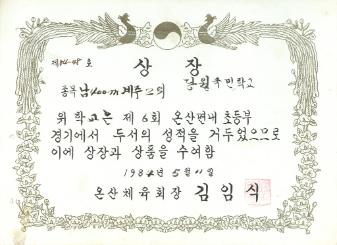 제84-48호
상 장
국민학교
종목 남400m계주 2위
위 학교는 제6회 온산면내 초등부
경기에서 두서의 성적을 거두었으므로
이에 상장과 상품을 수여함
1984년 5월 11일
온산체육회장 김임식